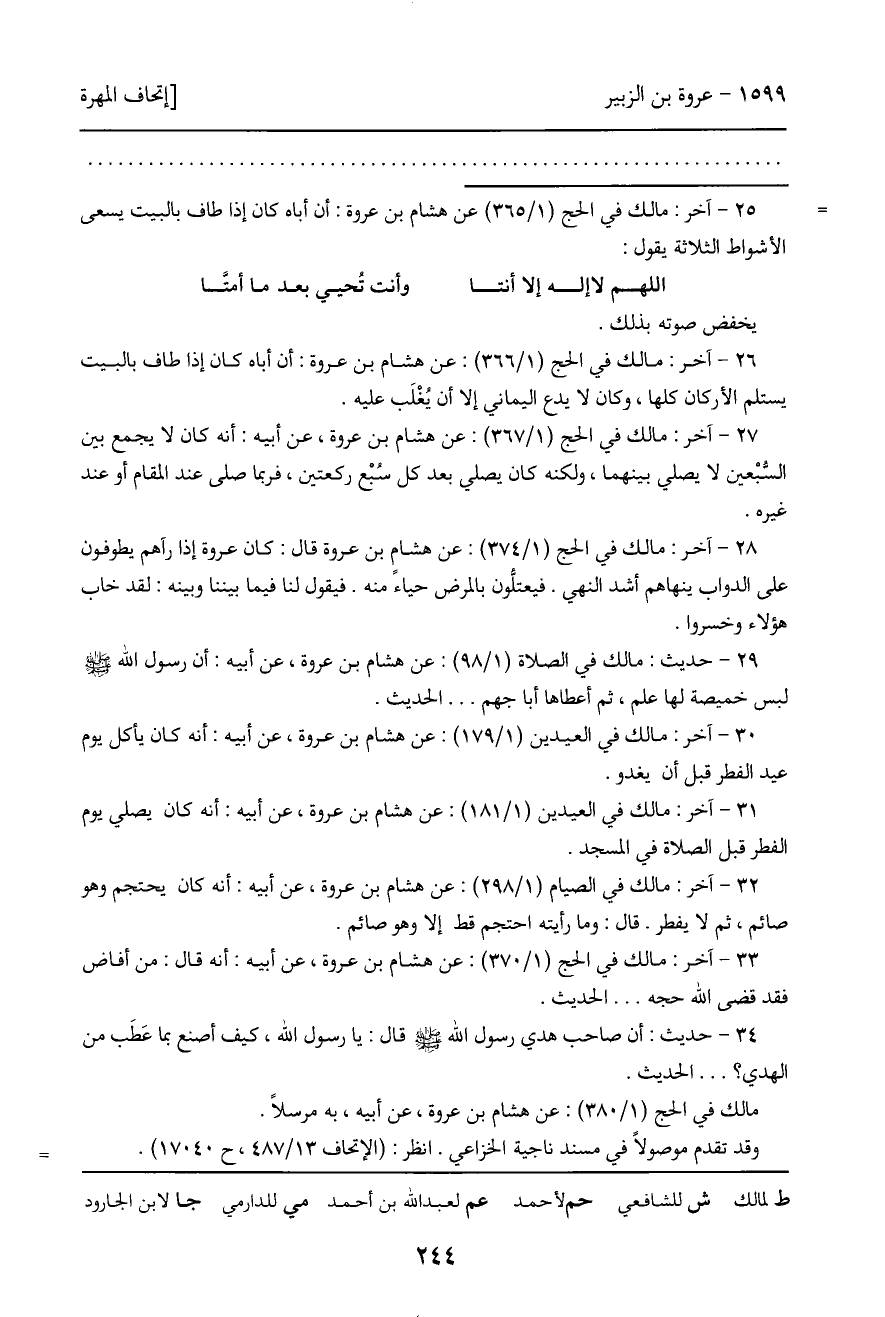 ١٥٩٩ - عروة بن الزبير [إتحاف المهرة
................................................................
= ٢٥ - آخر : مالك في الحج (٣٦٥/١) عن هشام بن عروة : أن أباه كان إذا طاف بالبيت يسعى
الأشواط الثلاثة يقول :
اللهـــم لاإلـــه إلا أنتـــا وأنت تُحيـي بعـد مـا أمتَّـا
يخفض صوته بذلك .
٢٦ - آخر : مالك في الحج (٣٦٦/١) : عن هشام بن عروة : أن أباه كان إذا طاف بالبيت
يستلم الأركان كلها ، وكان لا يدع اليماني إلا أن يُغْلَب عليه .
٢٧ - آخر : مالك في الحج (٣٦٧/١) : عن هشام بن عروة ، عن أبيه : أنه كان لا يجمع بين
السُّبْعين لا يصلي بينهما ، ولكنه كان يصلي بعد كل سُبْع ركعتين ، فربما صلى عند المقام أو عند
غيره .
٢٨ - آخر : مالك في الحج (٣٧٤/١) : عن هشام بن عروة قال : كان عروة إذا رآهم يطوفون
على الدواب ينهاهم أشد النهي . فيعتلُّون بالمرض حياءً منه . فيقول لنا فيما بيننا وبينه : لقد خاب
هؤلاء وخسروا .
٢٩ - حديث : مالك في الصلاة (٩٨/١) : عن هشام بن عروة ، عن أبيه : أن رسول الله ﷺ
لبس خميصة لها علم ، ثم أعطاها أبا جهم . . . الحديث .
٣٠ - آخر : مالك في العيدين (١٧٩/١) : عن هشام بن عروة ، عن أبيه : أنه كان يأكل يوم
عيد الفطر قبل أن يغدو .
٣١ - آخر : مالك في العيدين (١٨١/١) : عن هشام بن عروة ، عن أبيه : أنه كان يصلي يوم
الفطر قبل الصلاة في المسجد .
٣٢ - آخر : مالك في الصيام (٢٩٨/١) : عن هشام بن عروة ، عن أبيه : أنه كان يحتجم وهو
صائم ، ثم لا يفطر . قال : وما رأيته احتجم قط إلا وهو صائم .
٣٣ - آخر : مالك في الحج (٣٧٠/١) : عن هشام بن عروة ، عن أبيه : أنه قال : من أفاض
فقد قضى الله حجه . . . الحديث .
٣٤ - حديث : أن صاحب هدي رسول الله ﷺ قال : يا رسول الله ، كيف أصنع بما عَطَب من
الهدي؟ . . . الحديث .
مالك في الحج (٣٨٠/١) : عن هشام بن عروة ، عن أبيه ، به مرسلاً .
وقد تقدم موصولاً في مسند ناجية الخزاعي . انظر : (الإتحاف ٤٨٧/١٣ ، ح ١٧٠٤٠) . =
ط لمالك ش للشافعي حم لأحمد عم لعبدالله بن أحمد مي للدارمي جا لابن الجارود
٢٤٤